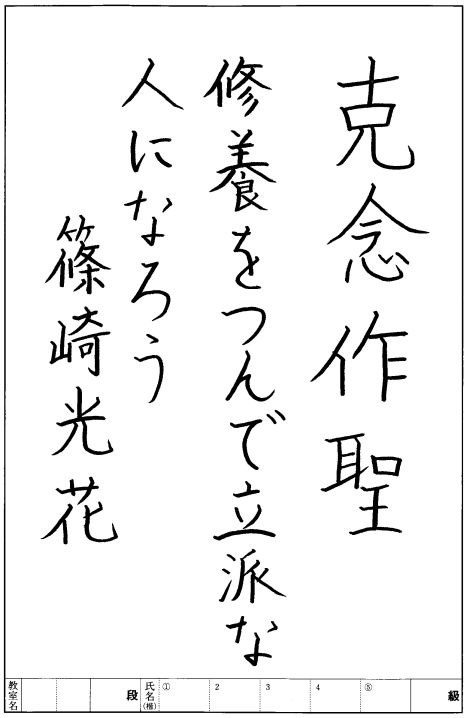 克念作聖
修養をつんで立派な
人になろう
篠崎光花
級 ⑤ 4 3 2 ① 氏名(楷) 段 教室名